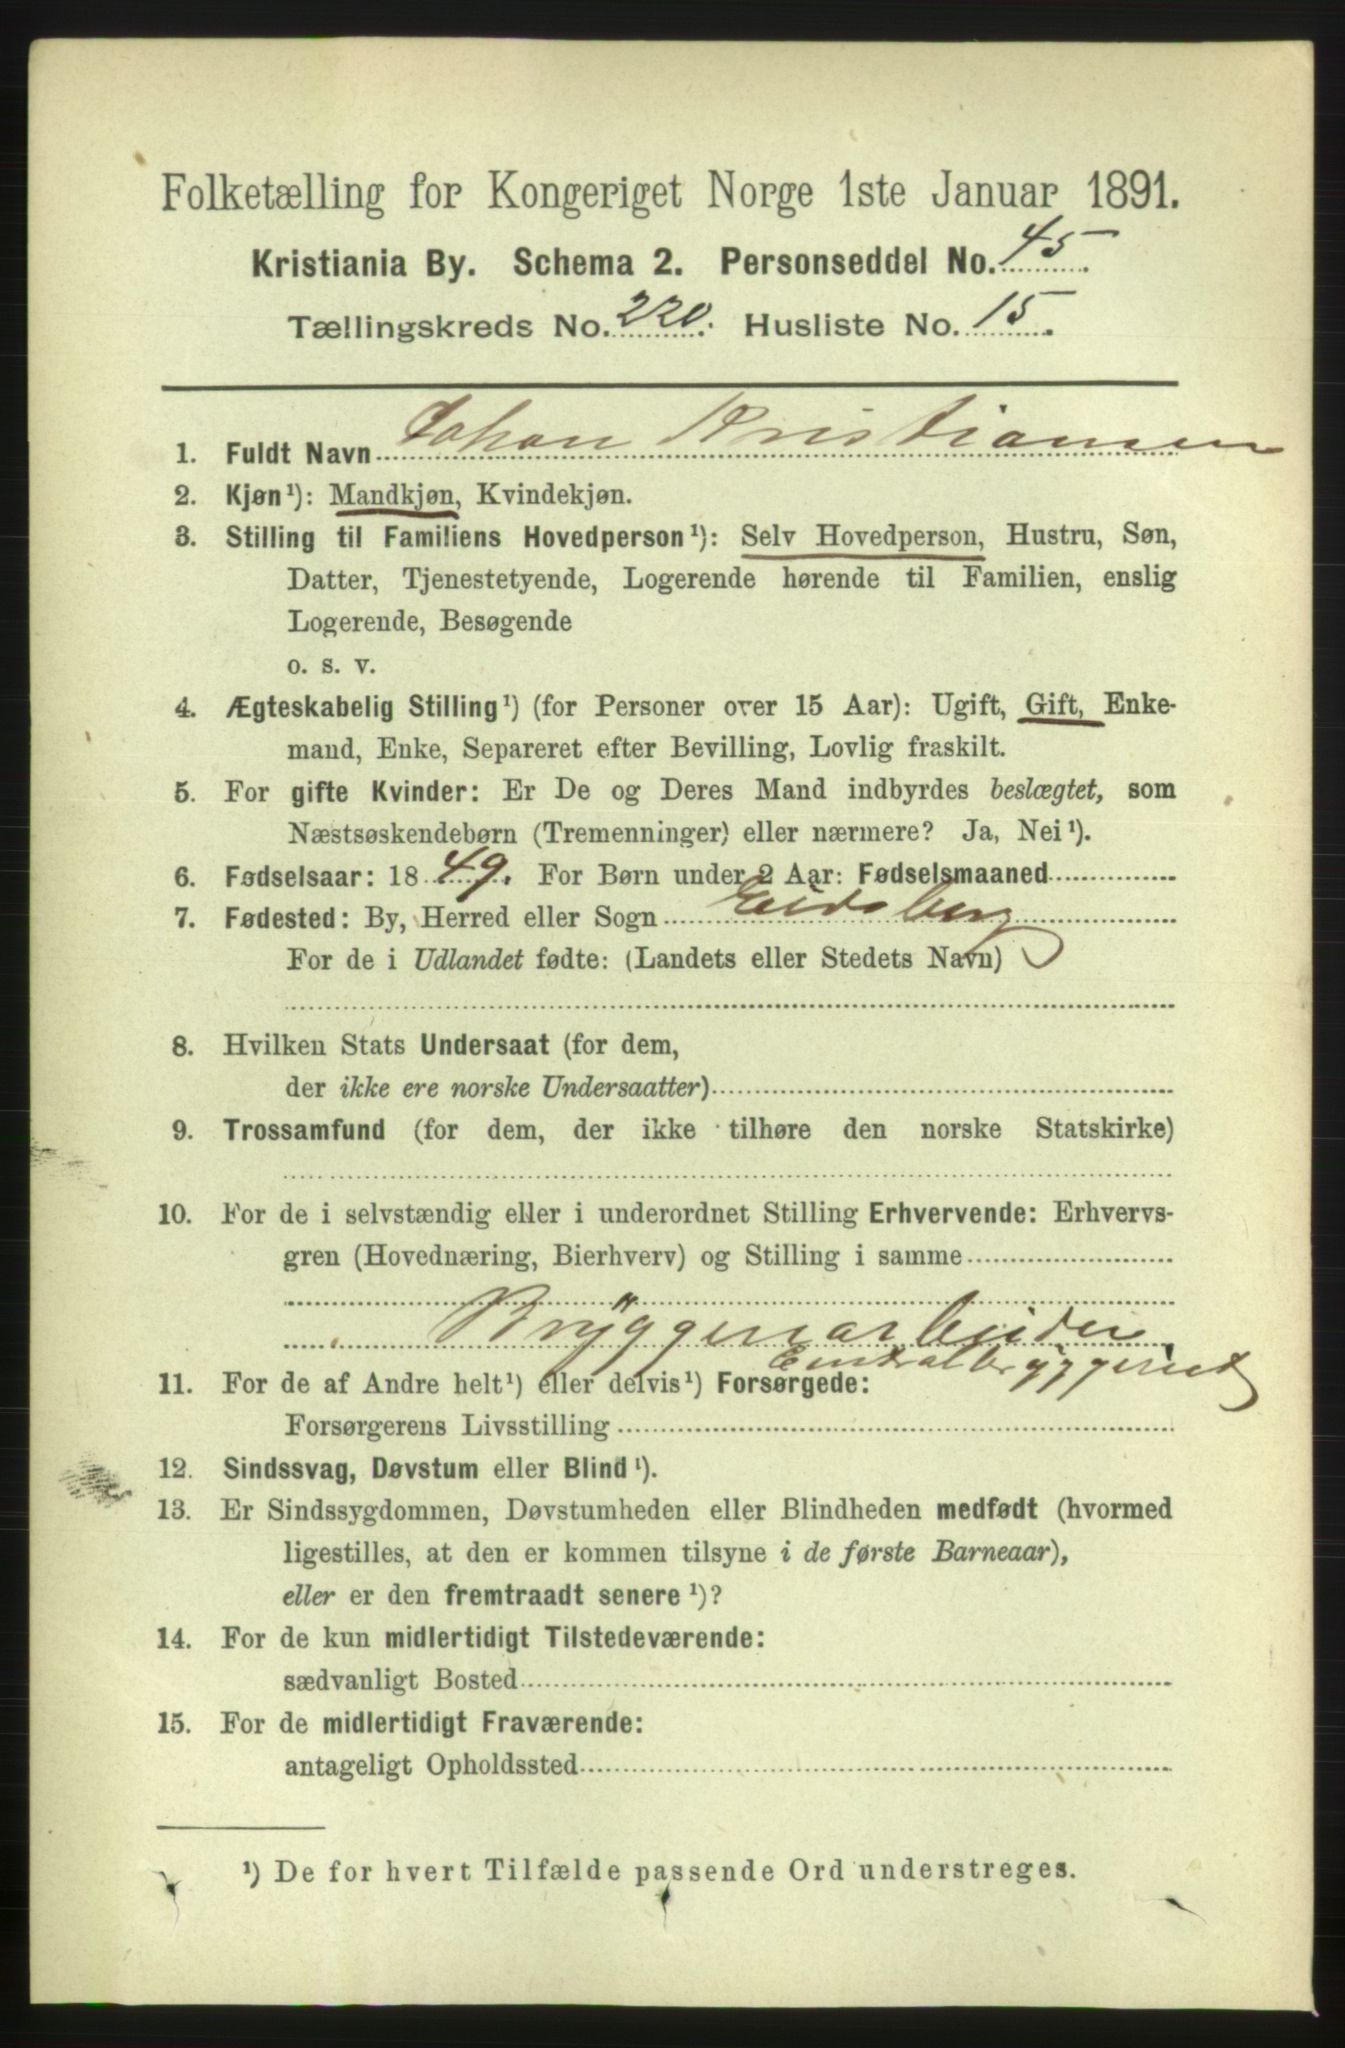 Folketælling for Kongeriget Norge 1ste Januar 1891.
Kristiania By. Schema 2. Personseddel No. 45
Tællingskreds No. 220. Husliste No. 15.
1. Fuldt Navn Johan Kristiansen
2. Kjøn¹): Mandkjøn, Kvindekjøn.
3. Stilling til Familiens Hovedperson¹): Selv Hovedperson, Hustru, Søn,
Datter, Tjenestetyende, Logerende hørende til Familien, enslig
Logerende, Besøgende
o. s. v.
4. Ægteskabelig Stilling¹) (for Personer over 15 Aar): Ugift, Gift, Enke-
mand, Enke, Separeret efter Bevilling, Lovlig fraskilt.
5. For gifte Kvinder: Er De og Deres Mand indbyrdes beslægtet, som
Næstsøskendebørn (Tremenninger) eller nærmere? Ja, Nei¹).
6. Fødselsaar: 1849. For Børn under 2 Aar: Fødselsmaaned
7. Fødested: By, Herred eller Sogn Eidsberg
For de i Udlandet fødte: (Landets eller Stedets Navn)
8. Hvilken Stats Undersaat (for dem,
der ikke ere norske Undersaatter)
9. Trossamfund (for dem, der ikke tilhøre den norske Statskirke)
10. For de i selvstændig eller i underordnet Stilling Erhvervende: Erhvervs-
gren (Hovednæring, Bierhverv) og Stilling i samme
Bryggeriarbeider
Centralbryggeriet
11. For de af Andre helt¹) eller delvis¹) Forsørgede:
Forsørgerens Livsstilling
12. Sindssvag, Døvstum eller Blind¹).
13. Er Sindssygdommen, Døvstumheden eller Blindheden medfødt (hvormed
ligestilles, at den er kommen tilsyne i de første Barneaar),
eller er den fremtraadt senere¹)?
14. For de kun midlertidigt Tilstedeværende:
sædvanligt Bosted
15. For de midlertidigt Fraværende:
antageligt Opholdssted
¹) De for hvert Tilfælde passende Ord understreges.